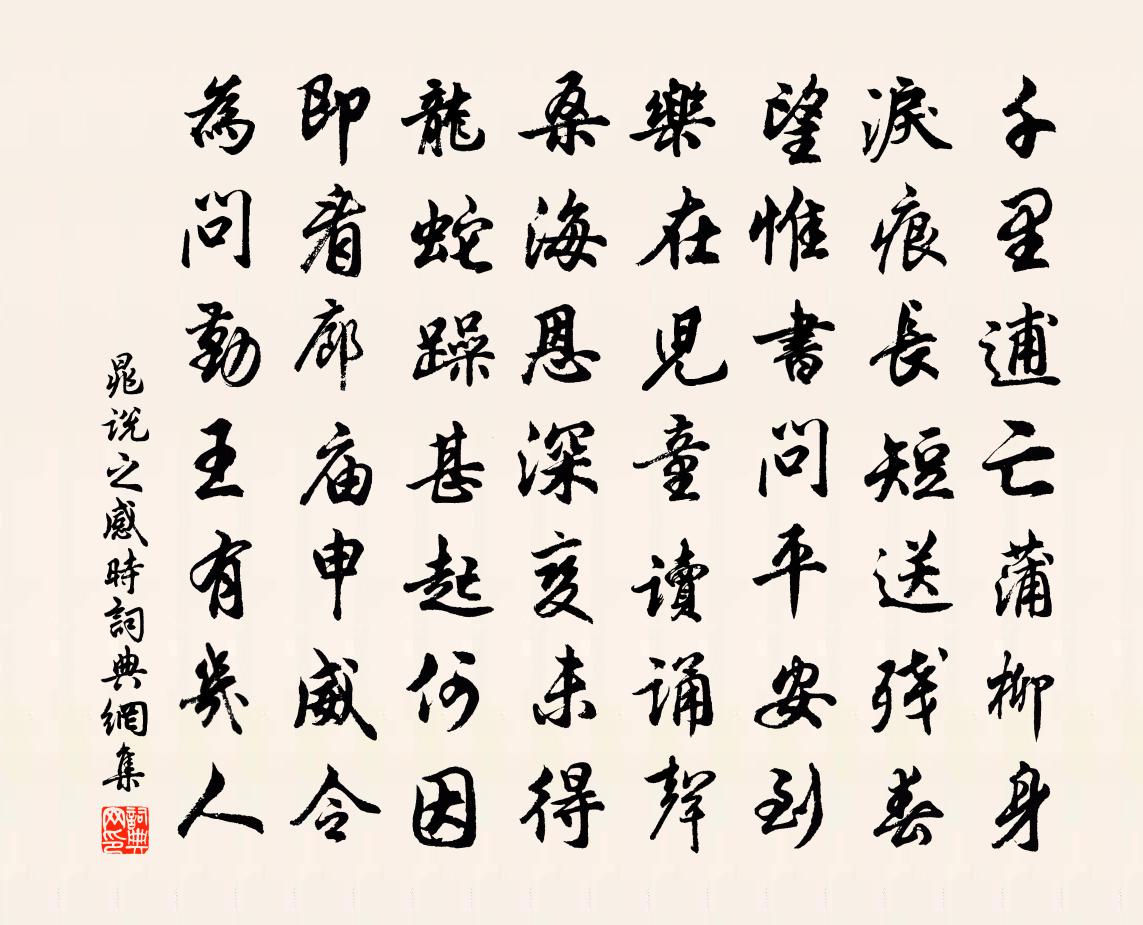 千里逋亡蒲柳身
淚痕長短送殘春
望惟書問平安到
樂在兒童讀誦聲
桑海恩深変未得
龍蛇躁甚起何因
即看廊廟申威令
為問勤王有幾人
晁說之感時詞典網集
詞典网印